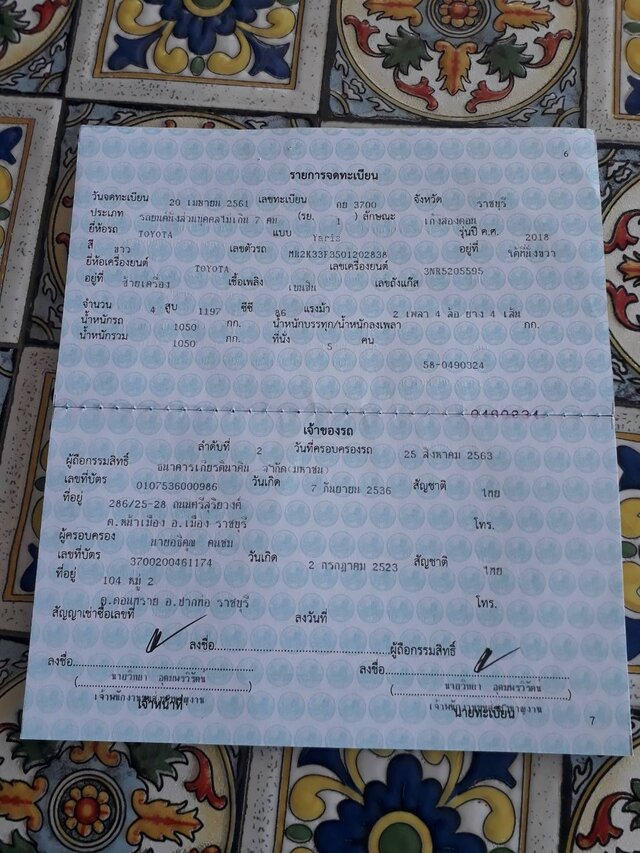 6
รายการจดทะเบียน
วันจดทะเบียน 20 เมษายน 2561 เลขทะเบียน กย 3700 จังหวัด ราชบุรี
ประเภท รถยนต์นั่งส่วนบุคคลไม่เกิน 7 คน (รย. 1) ลักษณะ เก๋งสองตอน
ยี่ห้อรถ TOYOTA แบบ Yaris รุ่นปี ค.ศ. 2018
สี ขาว เลขตัวรถ MR2K33F3501202838 อยู่ที่ ใต้ที่นั่งขวา
ยี่ห้อเครื่องยนต์ TOYOTA เลขเครื่องยนต์ 3NR5205595
อยู่ที่ ซ้ายเครื่อง เชื้อเพลิง เบนซิน เลขถังแก๊ส
จำนวน 4 สูบ 1197 ซีซี 86 แรงม้า 2 เพลา 4 ล้อ ยาง 4 เส้น
น้ำหนักรถ 1050 กก. น้ำหนักบรรทุก/น้ำหนักลงเพลา กก.
น้ำหนักรวม 1050 กก. ที่นั่ง 5 คน
58-0490324
เจ้าของรถ
ลำดับที่ 2 วันที่ครอบครองรถ 25 สิงหาคม 2563
ผู้ถือกรรมสิทธิ์ ธนาคารเกียรตินาคิน จำกัด(มหาชน)
เลขที่บัตร 0107536000986 วันเกิด 7 กันยายน 2536 สัญชาติ ไทย
ที่อยู่ 286/25-28 ถนนศรีสุริยวงศ์
ต.หน้าเมือง อ.เมือง ราชบุรี โทร.
ผู้ครอบครอง นายอธิคุณ คนชม
เลขที่บัตร 3700200461174 วันเกิด 2 กรกฎาคม 2523 สัญชาติ ไทย
ที่อยู่ 104 หมู่ 2
ต.ดอนทราย อ.ปากท่อ ราชบุรี โทร.
สัญญาเช่าซื้อเลขที่ ลงวันที่
ลงชื่อ ผู้ถือกรรมสิทธิ์
ลงชื่อ ลงชื่อ
(นายวิทยา) (นายวิทยา)
เจ้าหน้าที่ นายทะเบียน
7